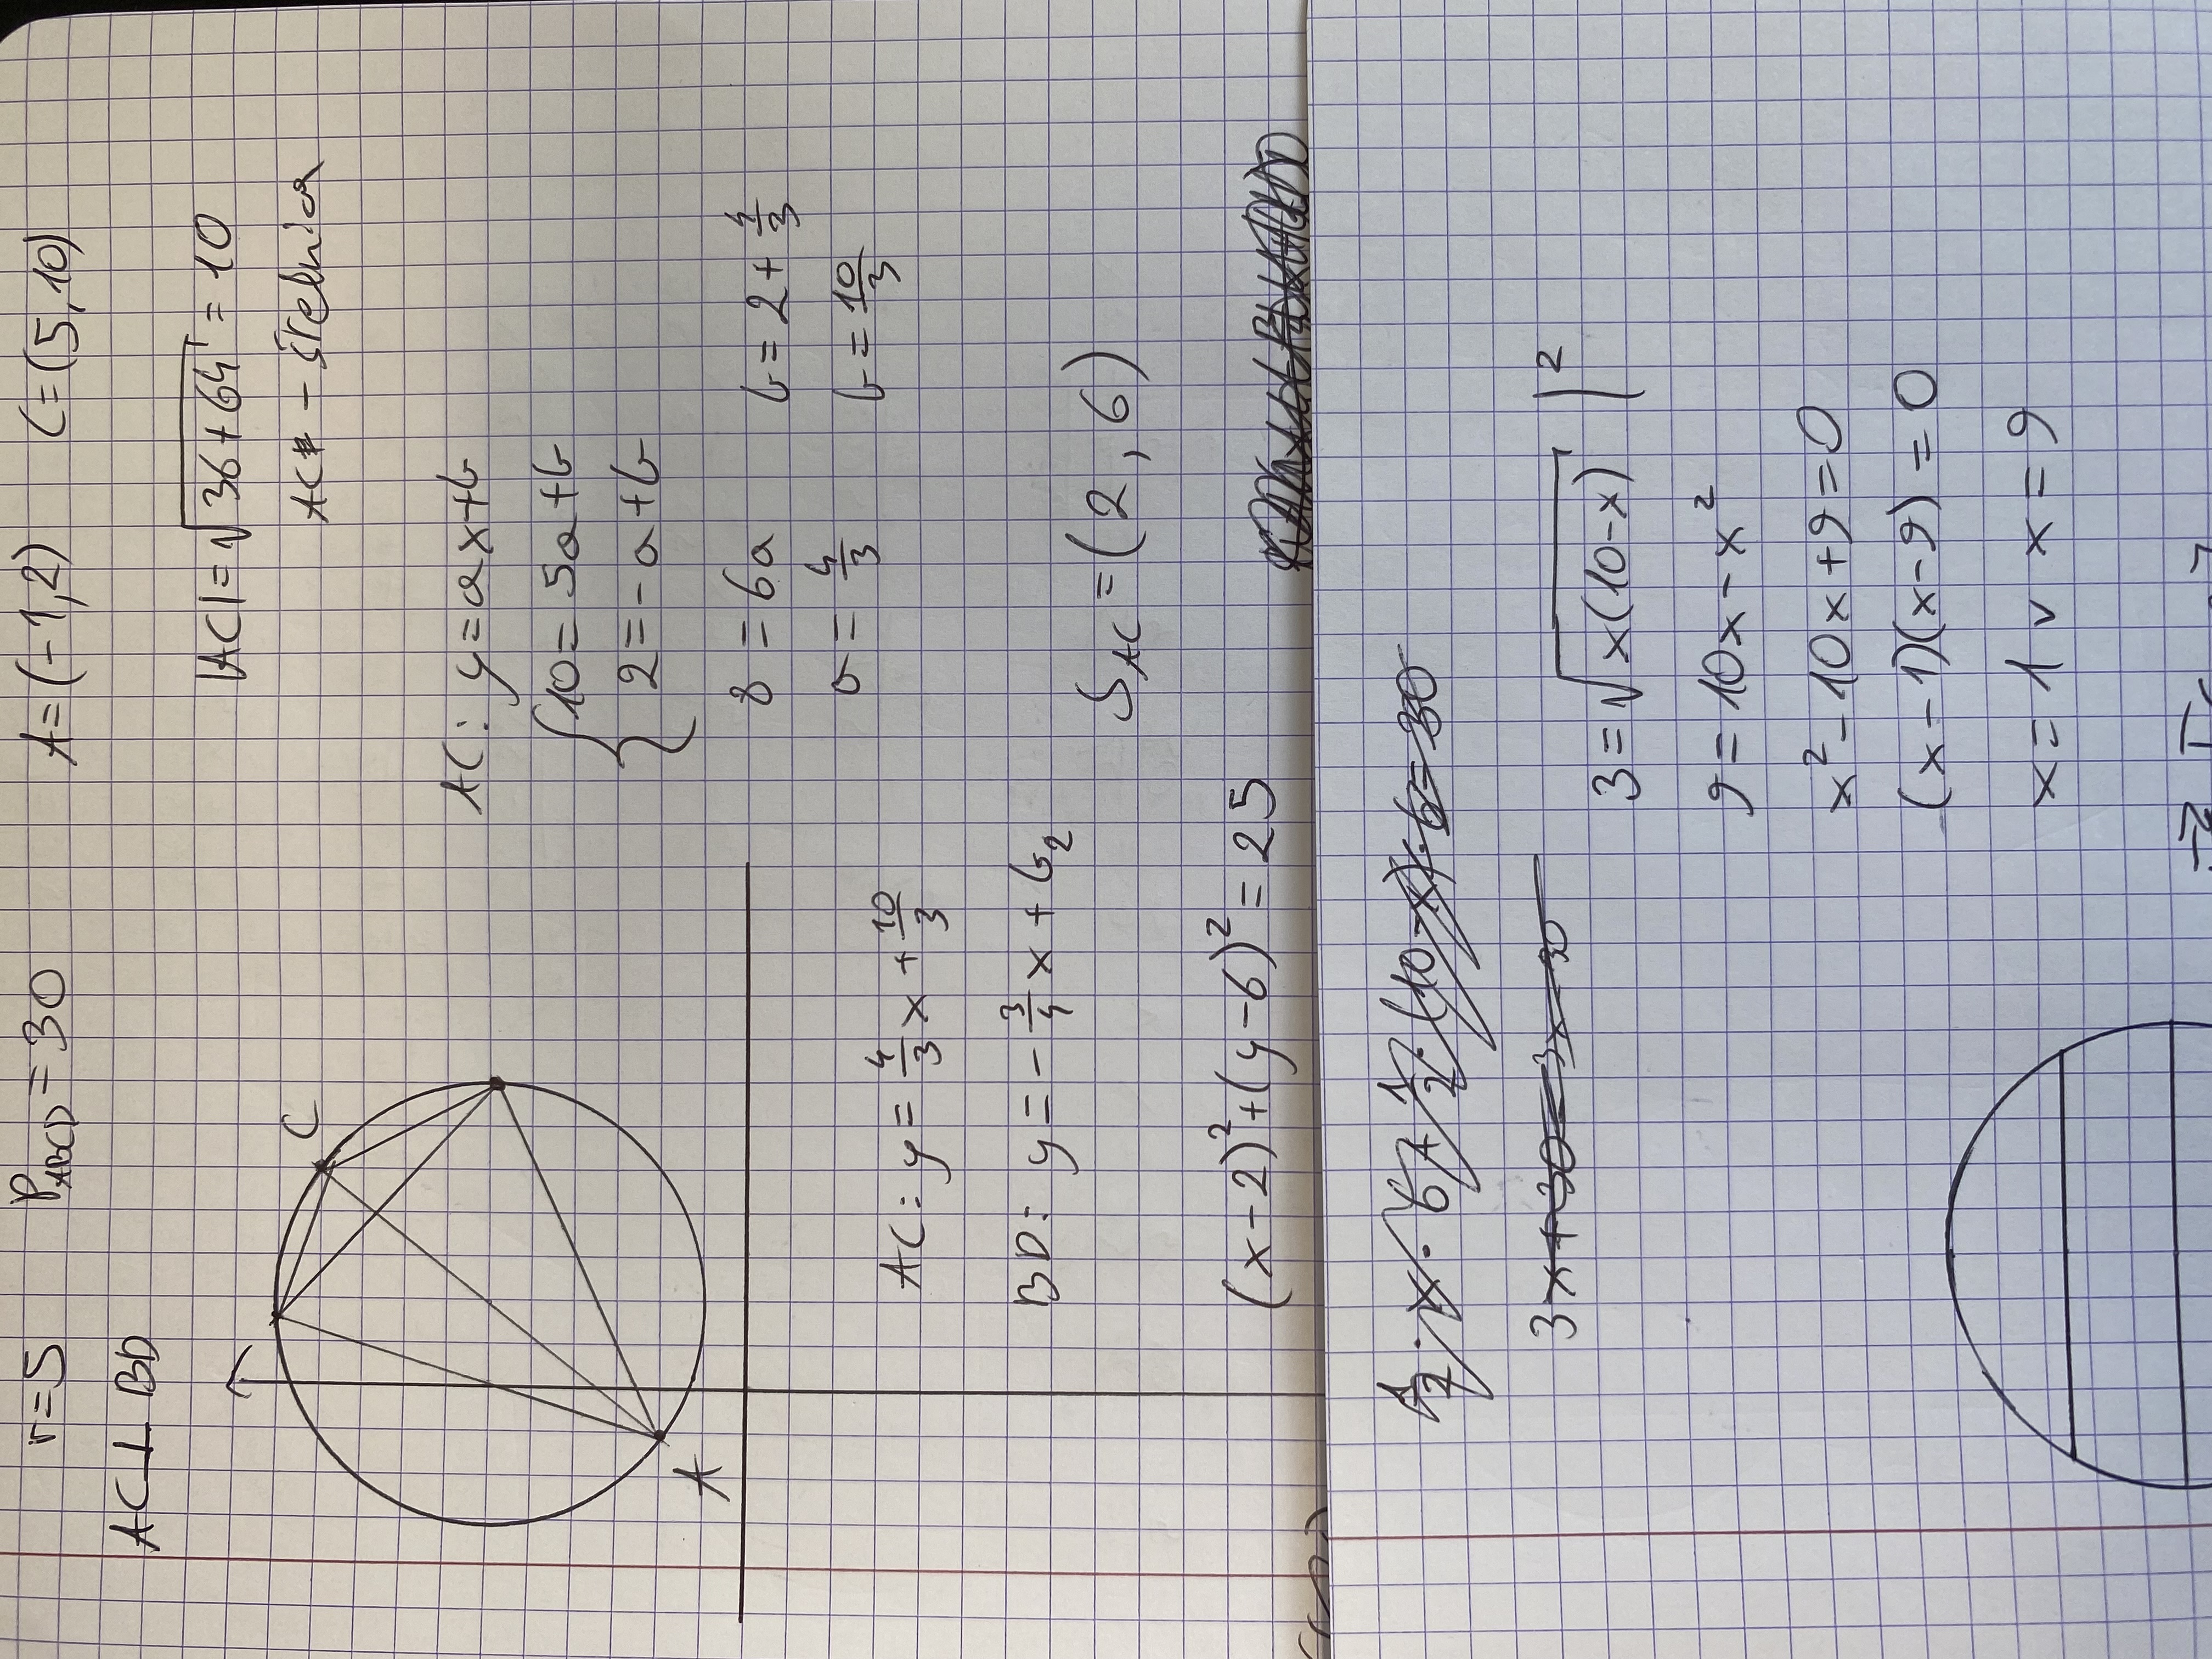 r=5 P_ABCD=30 A=(-1,2) C=(5,10)
AC⊥BD
|AC|=√(36+64)=10
AC - średnica
C
A
AC: y=ax+b
{10=5a+b
2=-a+b
8=6a b=2+4/3
a=4/3 b=10/3
AC: y=4/3x+10/3
BD: y=-3/4x+b₂
S_AC=(2,6)
(x-2)²+(y-6)²=25
1/2·x·6+1/2·(10-x)·6=30
3x+30-3x=30
3=√(x(10-x)) |²
9=10x-x²
x²-10x+9=0
(x-1)(x-9)=0
x=1 v x=9